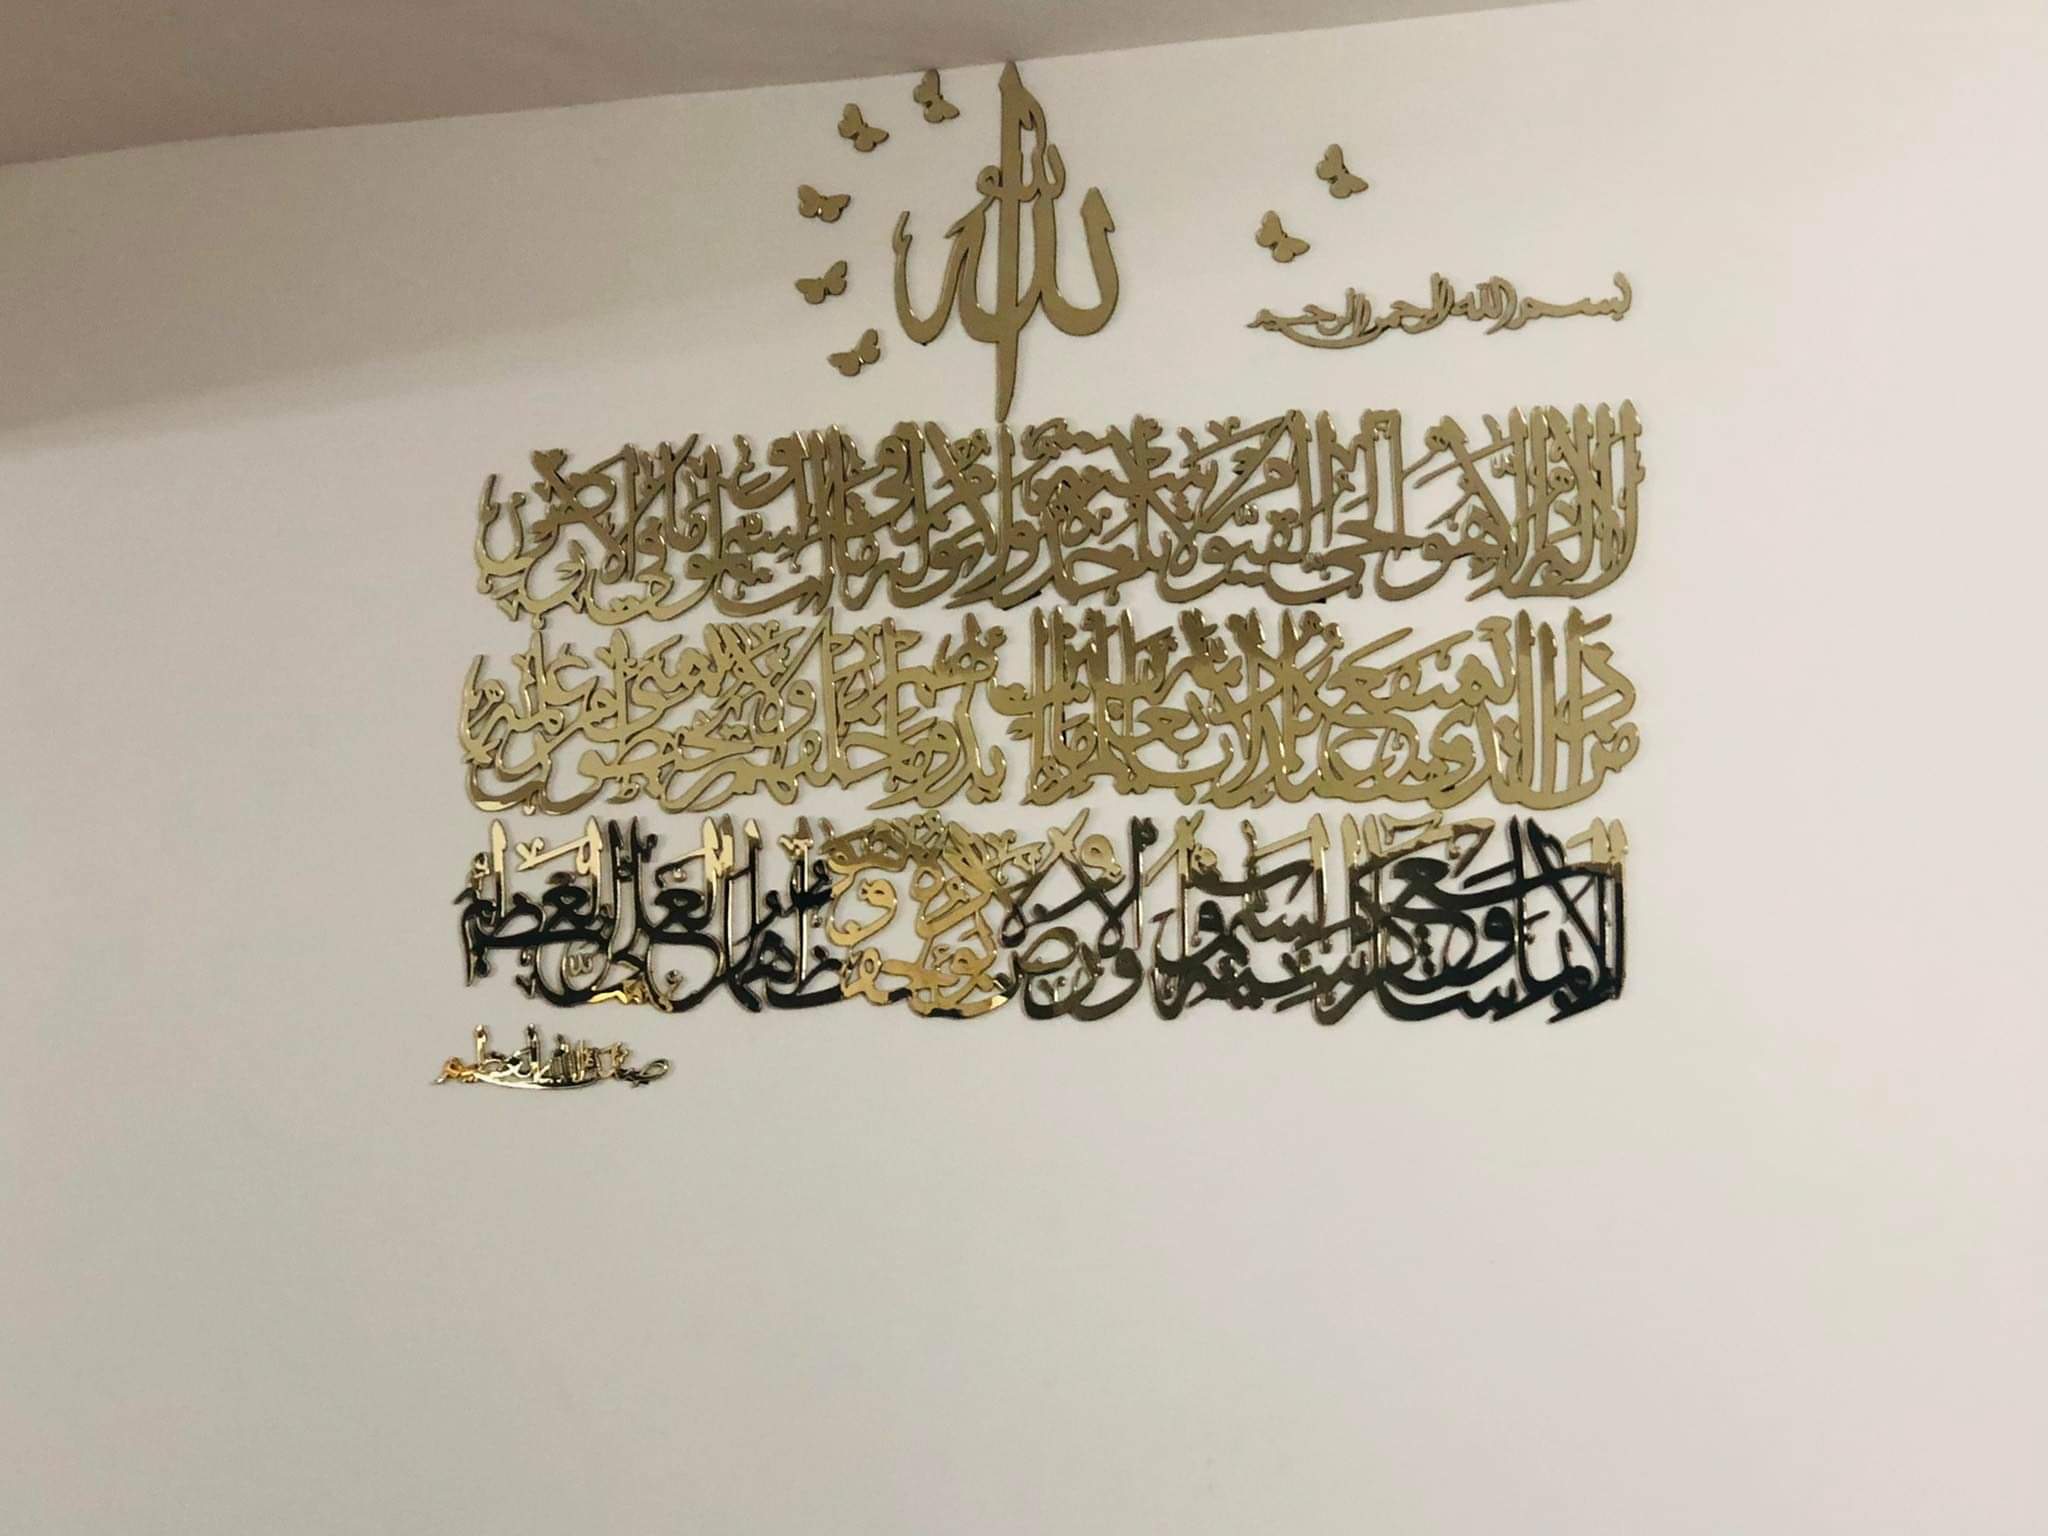 بسم الله الرحمن الرحيم
الله
لا إله إلا هو الحي القيوم لا تأخذه سنة ولا نوم له ما في السموات وما في الأرض
من ذا الذي يشفع عنده إلا بإذنه يعلم ما بين أيديهم وما خلفهم ولا يحيطون بشيء من علمه
إلا بما شاء وسع كرسيه السموات والأرض ولا يؤده حفظهما وهو العلي العظيم
صدق الله العظيم